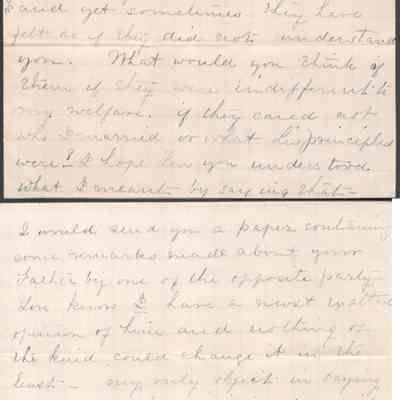 and yet sometimes they have
felt as if they did not understand
you. What would you think of
them if they were indifferent to
my welfare. if they cared not
who I married or what his principles
were? I hope Len you understood
what I meant by saying that
I would send you a paper containing
some remarks made about your
Father by one of the opposite party
You know I have a most exalted
opinion of him and nothing of
the kind could change it in the
least - my only object in saying